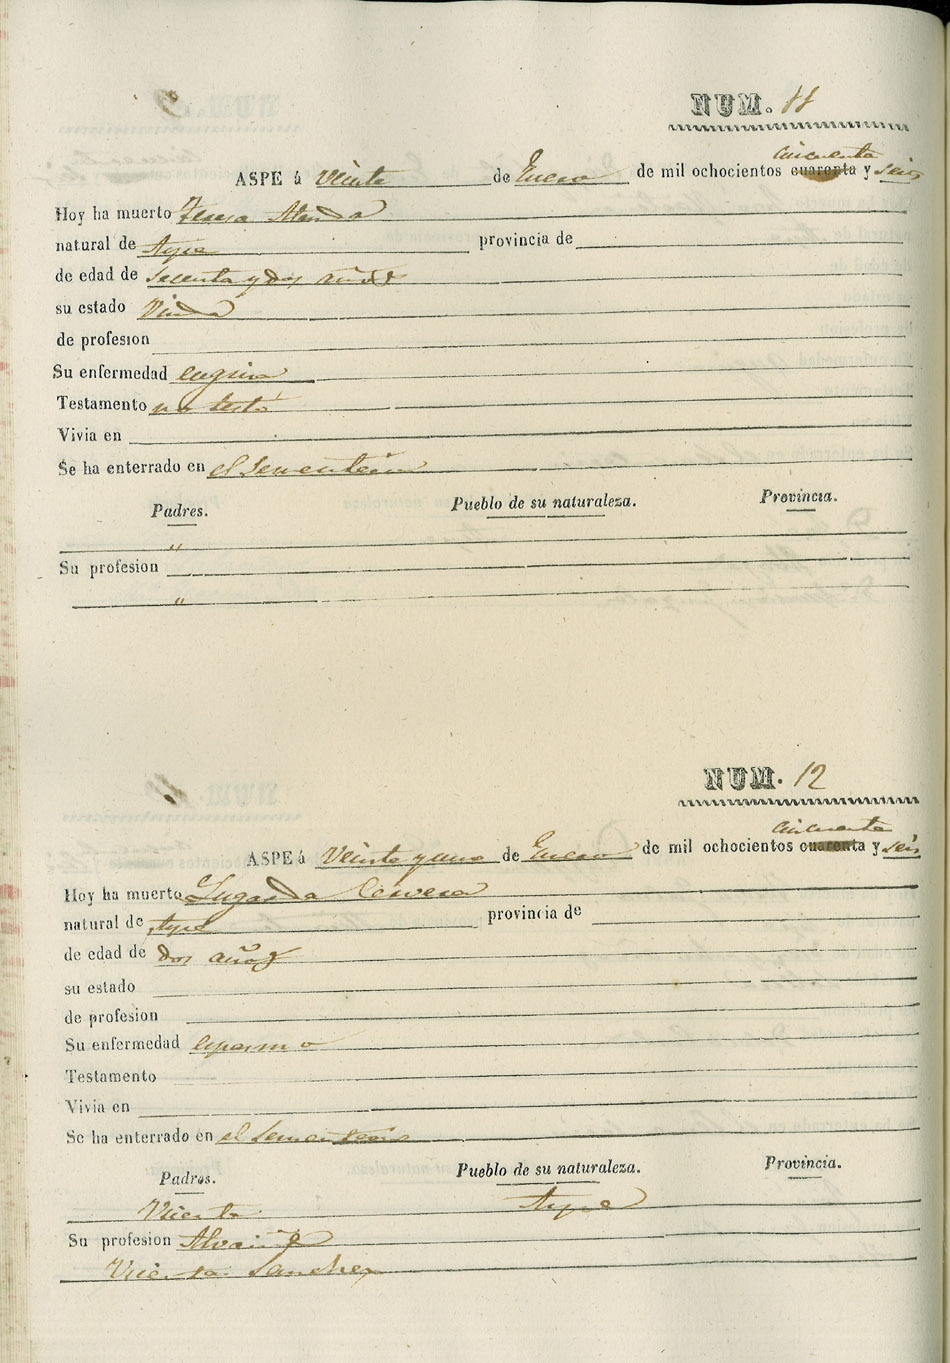 NUM. 11
cincuenta
ASPE á Veinte de Enero de mil ochocientos cuarenta y seis
Hoy ha muerto Teresa Alenda
natural de Aspe provincia de
de edad de secenta y dos años
su estado Viuda
de profesion
Su enfermedad angina
Testamento no testó
Vivia en
Se ha enterrado en el Sementerio
Padres. Pueblo de su naturaleza. Provincia.
"
Su profesion
"
NUM. 12
cincuenta
ASPE á Veinte y uno de Enero de mil ochocientos cuarenta y seis
Hoy ha muerto Lugarda Cervera
natural de Aspe provincia de
de edad de dos años
su estado
de profesion
Su enfermedad espasmo
Testamento
Vivia en
Se ha enterrado en el Sementerio
Padres. Pueblo de su naturaleza. Provincia.
Vicente Aspe
Su profesion Alvañil
Vicenta Sanchez